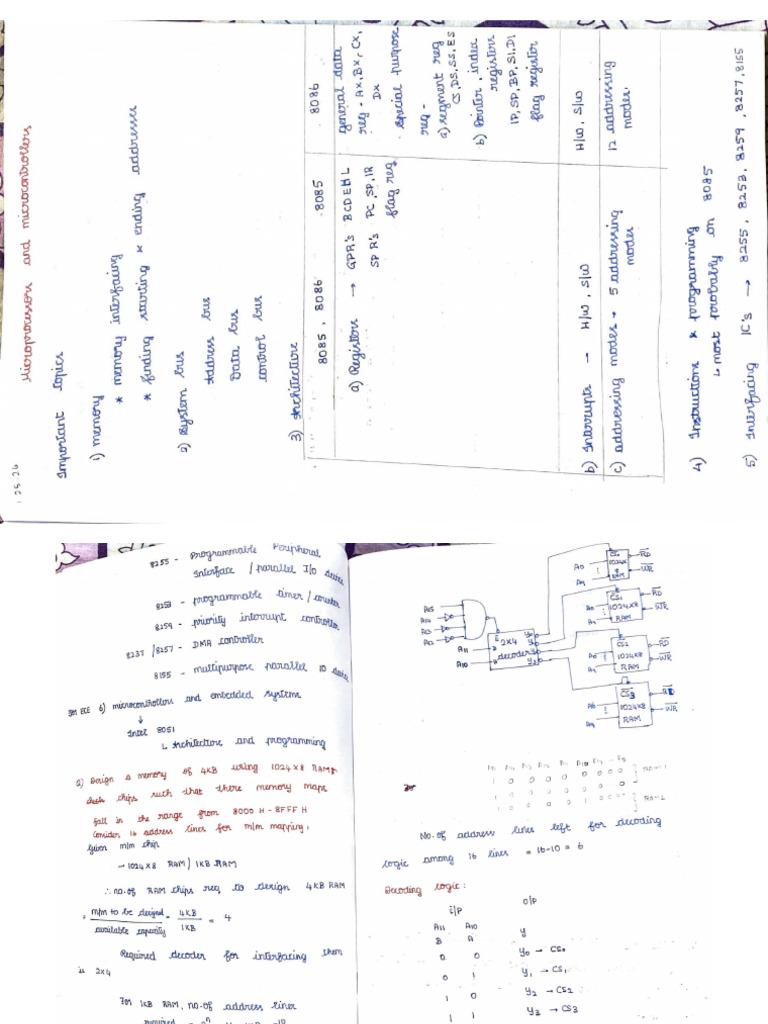 Microprocessors and microcontrollers
Important topics
1) memory
* memory interfacing
* finding starting * ending addresses
2) System bus
Address bus
Data bus
control bus
3) Architecture
8085, 8086 8085 8086
a) Registers → GPR's B C D E H L
SPR's PC, SP, IR
flag reg
general data
reg - AX, BX, CX,
DX
special purpose
reg -
a) segment reg
CS, DS, SS, ES
b) Pointer, index
registers
IP, SP, BP, SI, DI
flag register
b) Interrupts → H/W, S/W H/W, S/W
c) addressing modes → 5 addressing modes 12 addressing modes.
4) Instructions * programming
↳ most probably on 8085
5) Interfacing IC's → 8255, 8253, 8259, 8257, 8155
8255 - Programmable Peripheral
Interface / parallel I/O device
8253 - programmable timer / counter
8259 - priority interrupt controller
8237 / 8257 - DMA controller
8155 - multipurpose parallel IO device
for ECE 6) microcontrollers and embedded systems
↓
Intel 8051
↳ Architecture and programming
Design a memory of 4KB using 1024 x 8 RAM
chips such that there memory maps
fall in the range from 8000 H - 8FFF H
Consider 16 address lines for m/m mapping.
Given m/m chip
→ 1024 x 8 RAM / 1KB RAM
∴ no. of RAM chips req to design 4KB RAM
= m/m to be designed / available capacity = 4KB / 1KB = 4
Required decoder for interfacing them
is 2x4
For 1KB RAM, no. of address lines
A15
A14
A13
A12
A11
A10
2x4
decoder
A0
A9
CS0
1024x8
RAM
RD
WR
A0
A9
CS1
1024x8
RAM
RD
WR
A0
A9
CS2
1024x8
RAM
RD
WR
A0
A9
CS3
1024x8
RAM
RD
WR
No. of address lines left for decoding
logic among 16 lines = 16-10 = 6
Decoding logic:
i/p o/p
A11 A10
B A y
0 0 y0 → CS0
0 1 y1 → CS1
1 0 y2 → CS2
1 1 y3 → CS3